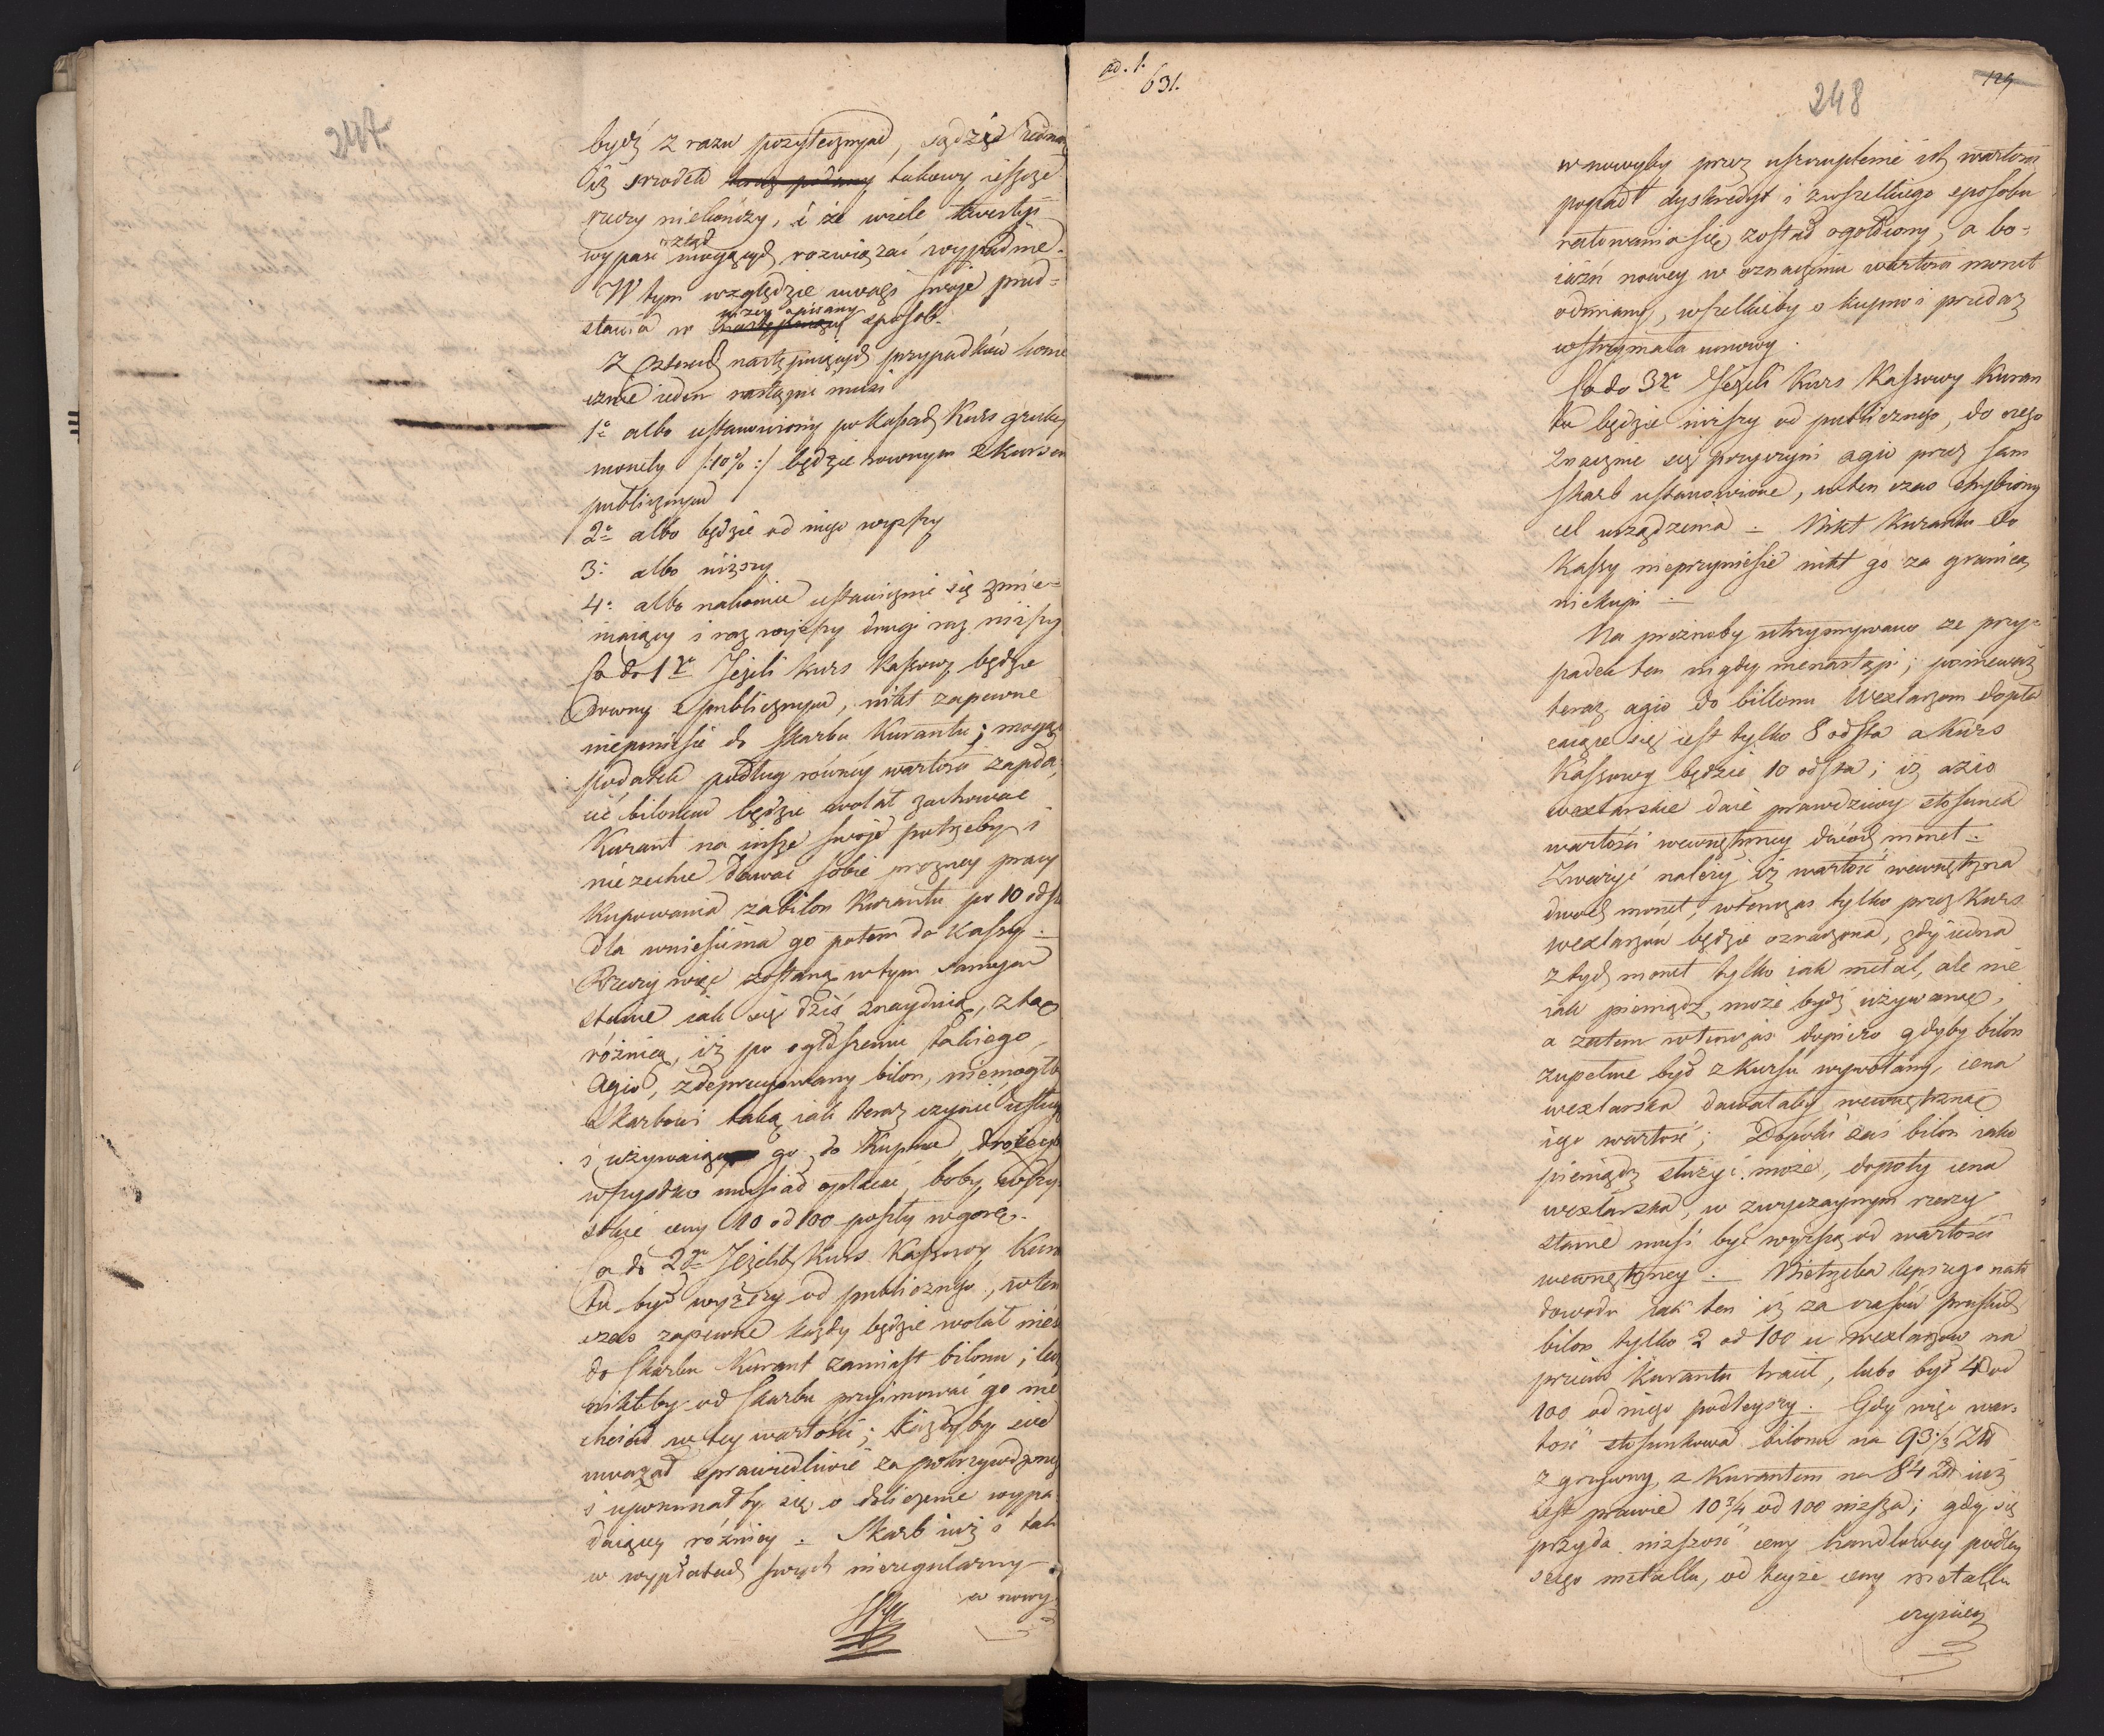 247
bydź z razu pożytecznym, sądzę iednak
iż srodek teraz podany takowy ieszcze
rzeczy niekończy, i że wiele kwestyi
wypaść ztąd mogących rozwiązać wypadnie.
W tym względzie uwagi swoje przed-
stawia w następujący niżey opisany sposob.
Z czterech następujących przypadków koni-
ecznie ieden nastąpić musi
1o albo ustanowiony po Kassach Kurs grubey
monety /:10%:/ będzie rownym z kursem
publicznym
2o albo będzie od niego wyższy
3o albo niższy
4o albo nakoniec ustawicznie się zmie-
niaiący i raz wyższy drugi raz niższy.
Co do 1o Jeżeli kurs kassowy będzie
rowny z publicznym, nikt zapewne
nieponiesie do skarbu Kurantu; mogąc
podatek podług równéy wartości zapła-
cić bilonem będzie wolał zachować
Kurant na insze swoje potrzeby i
nie zechce dawać sobie prozney pracy
kupowania za bilon Kurantu po 10 od sta
dla wniesienia go potem do Kassy.
Rzeczy więc zostaną w tym samym
stanie iak się dziś znayduią, z tą
różnicą, iż po ogłoszeniu takiego
Agio, zdeprecyonowany bilon, niemogłby
Skarbowi taką iak teraz czynić usługę
i używaiąc go do Kupna drożéyby
wszystko musiał opłacać, boby wszy-
stkie ceny 10 od 100 poszły w gorę.
Co do 2o Jeżeliby Kurs Kassowy Kuran-
tu był wyższy od publicznego, w ten
czas zapewne każdy będzie wolał nieść
do Skarbu Kurant zamiast bilonu; lecz
niktby od Skarbu przyimować go nie
chciał w tey wartości; każdyby się
uważał sprawiedliwie za pokrzywdzonego
i upominałby się o doliczenie wypa-
daiącey różnicy. Skarb iuż i tak
w wypłatach swych nieregularny
w nowy-
ad. 1.
631.
248
129
w nowyby przez uszczuplenie ich wartości
popadł dyskredyt i z wszelkiego sposobu
ratowania się został ogołocony, a bo-
iaźń nowey w oznaczeniu wartości monet
odmiany, wszelkieby o kupno i przedaż
wstrzymała umowy.
Co do 3o Jeżeli Kurs Kassowy Kuran
tu będzie niższy od publicznego, do czego
znacznie się przyczyni agio przez sam
Skarb ustanowione, w ten czas chybiony
cel urządzenia. Nikt Kurantu do
Kassy nieprzyniesie nikt go za granicą
niekupi.
Na prożnoby utrzymywano ze przy-
padek ten nigdy nienastąpi; ponieważ
teraz agio do billonu Wexlarzom dopła
caiące się iest tylko 8 od sta a Kurs
Kassowy będzie 10 od sta; iż ażio
wexlarskie daie prawdziwy stosunek
wartości wewnętrzney dwóch monet.
Zważyć należy iż wartość wewnętrzna
dwoch monet, wtenczas tylko przez Kurs
wexlarzów będzie oznaczona, gdy iedna
z tych monet tylko iak metal, ale nie
iak pieniądz, może bydź używaną;
a zatem wtenczas dopiero gdyby bilon
zupełnie był z kursu wywołany, cena
wexlarska dawałaby wewnętrzną
iego wartość; Dopóki zaś bilon iako
pieniądz służyć może, dopoty cena
wexlarska, w zwyczaynym rzeczy
stanie musi być wyższą od wartości
wewnętrzney. Nietrzeba lepszego nato
dowodu iak ten iż za czasów pruskich
bilon tylko 2 od 100 u wexlarzow na
przeciw Kurantu tracił, lubo był 40 od
100 od niego podleyszy. Gdy więc war-
tość stosunkowa bilonu na 93 1/3 Złł
z grzywny, z Kurantem na 84 Złł iuż
iest prawie 10 3/4 od 100 niższa; gdy się
przyda niższość ceny handlowey podley
szego metallu, od teyże ceny metallu
czysciey